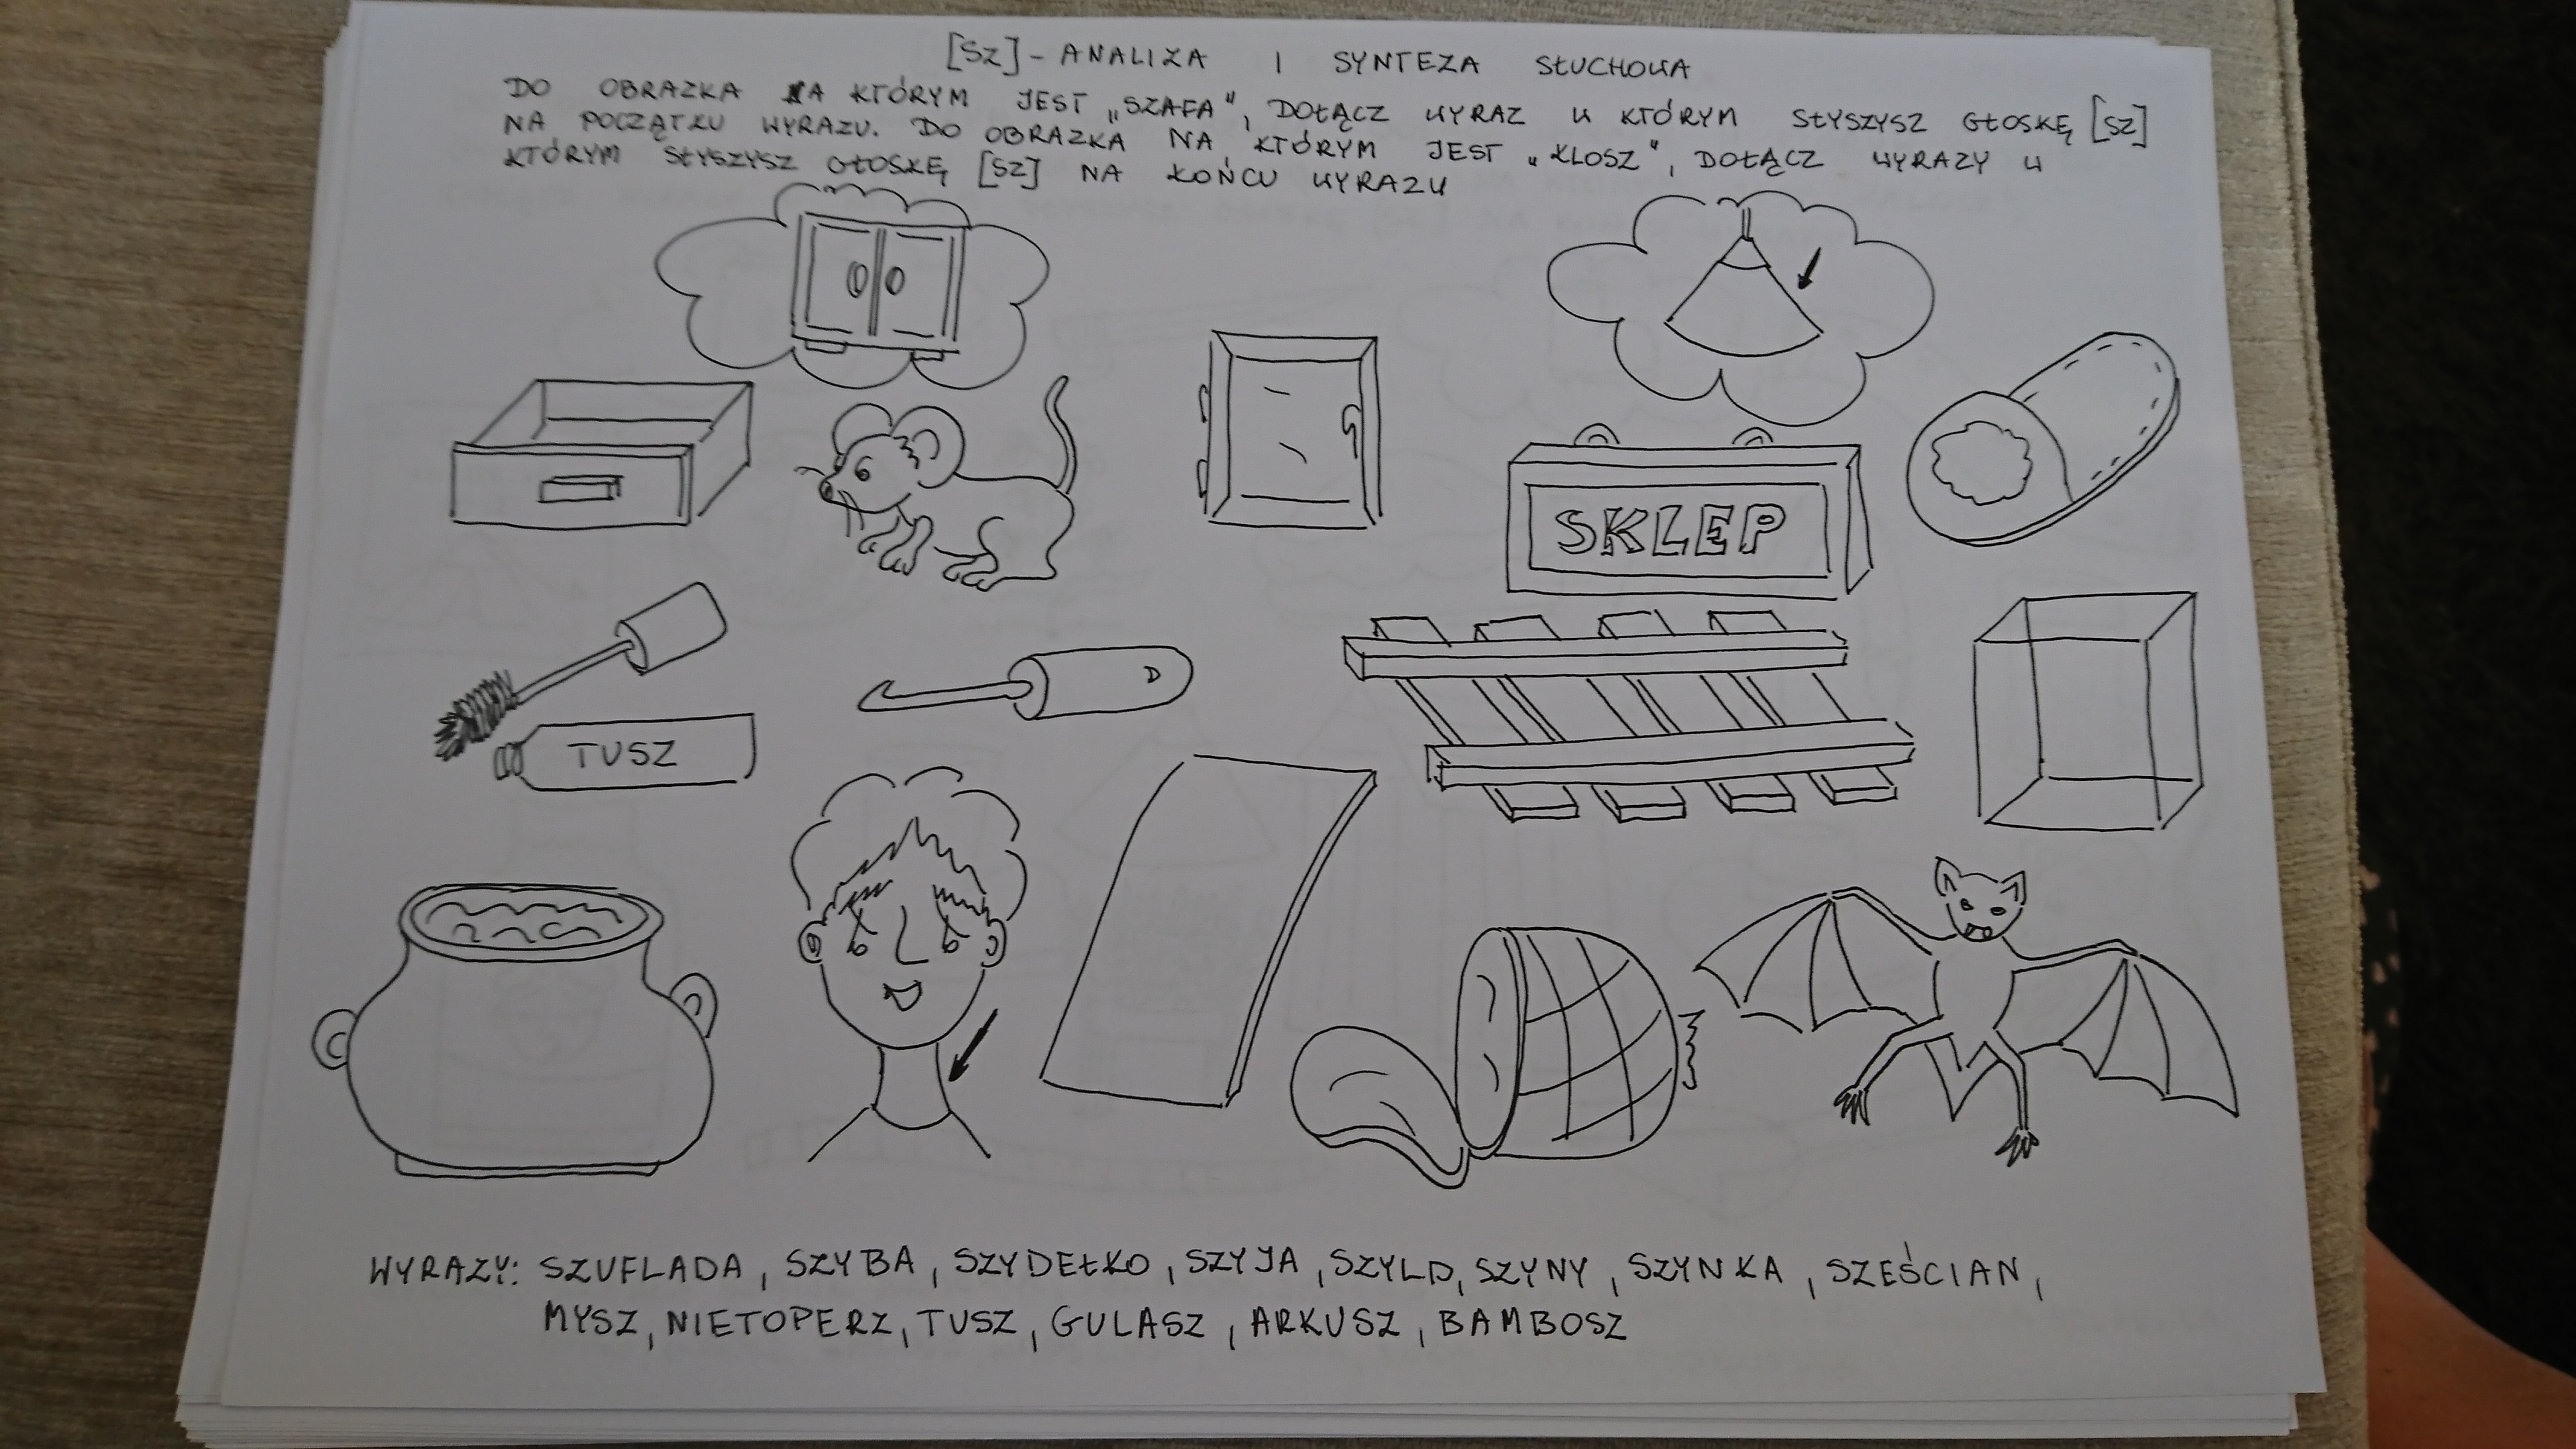 [SZ] - ANALIZA I SYNTEZA SŁUCHOWA
DO OBRAZKA NA KTÓRYM JEST „SZAFA”, DOŁĄCZ WYRAZ W KTÓRYM SŁYSZYSZ GŁOSKĘ [SZ]
NA POCZĄTKU WYRAZU. DO OBRAZKA NA KTÓRYM JEST „KLOSZ”, DOŁĄCZ WYRAZY W
KTÓRYM SŁYSZYSZ GŁOSKĘ [SZ] NA KOŃCU WYRAZU
SKLEP
TUSZ
WYRAZY: SZUFLADA, SZYBA, SZYDEŁKO, SZYJA, SZYLD, SZYNY, SZYNKA, SZEŚCIAN,
MYSZ, NIETOPERZ, TUSZ, GULASZ, ARKUSZ, BAMBOSZ